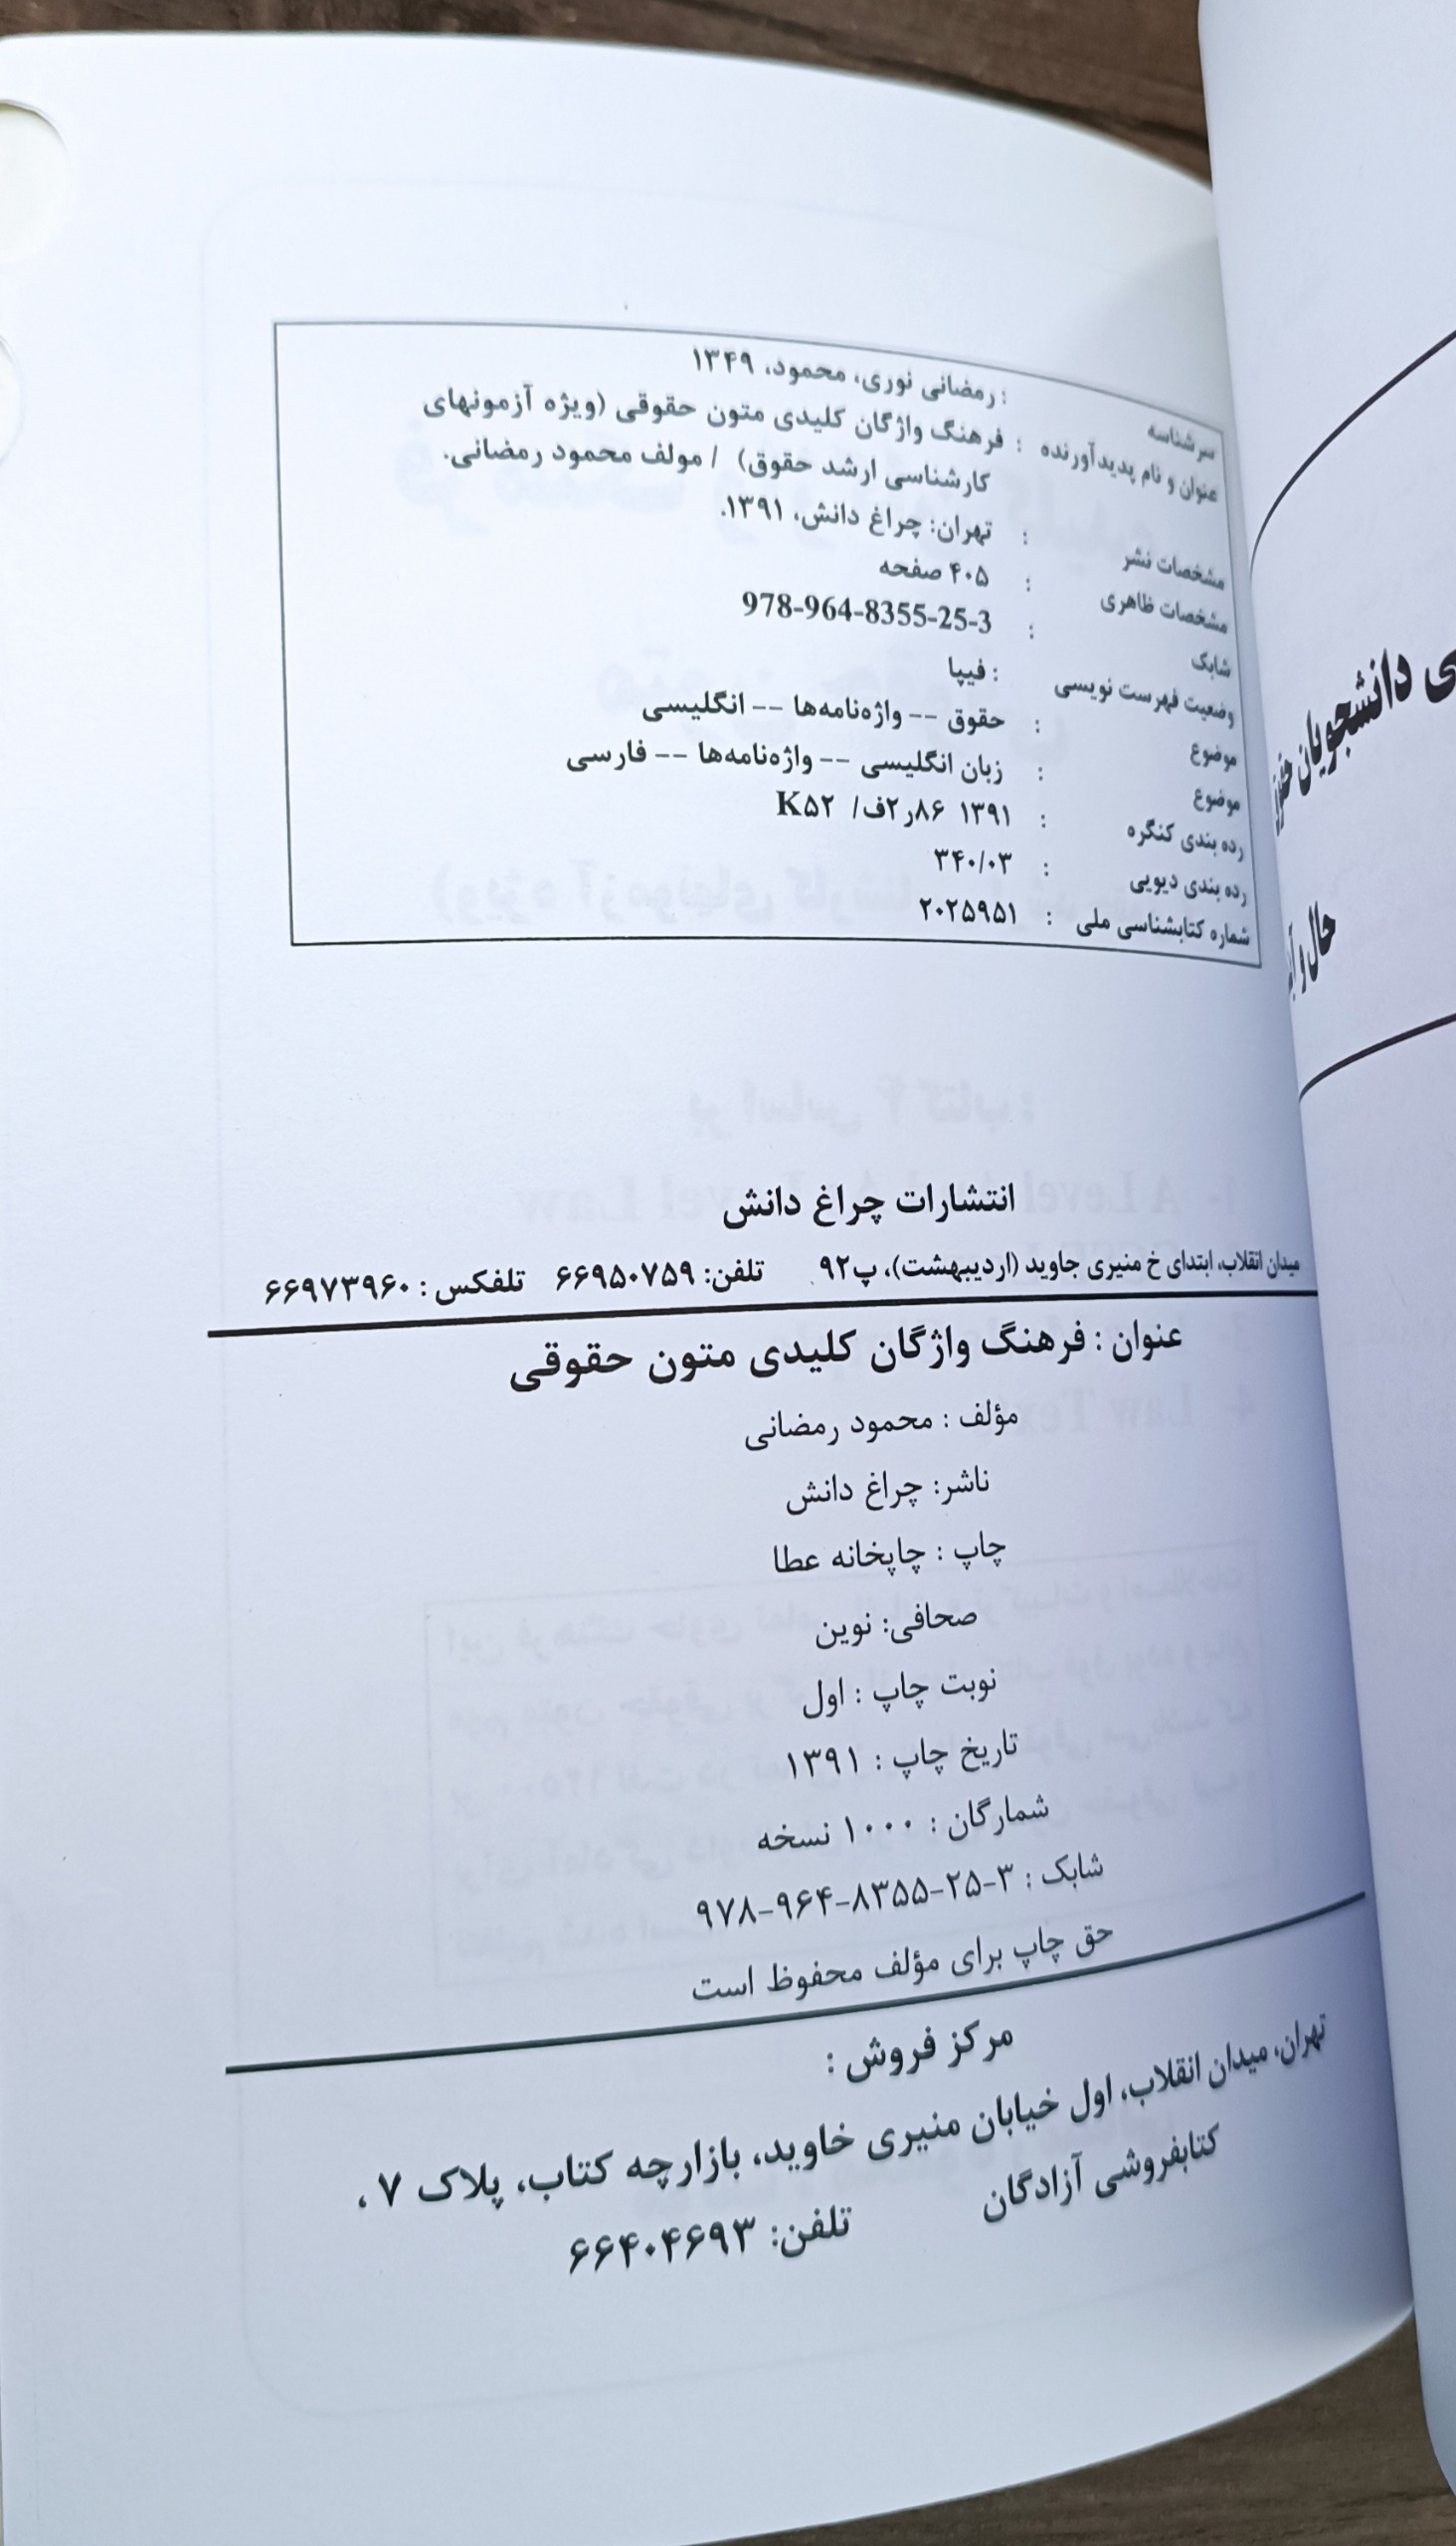 سرشناسه : رمضانی نوری، محمود، ۱۳۴۹
عنوان و نام پدیدآورنده : فرهنگ واژگان کلیدی متون حقوقی (ویژه آزمونهای
کارشناسی ارشد حقوق) / مولف محمود رمضانی.
مشخصات نشر : تهران: چراغ دانش، ۱۳۹۱.
مشخصات ظاهری : ۴۰۵ صفحه
شابک : 978-964-8355-25-3
وضعیت فهرست نویسی : فیپا
موضوع : حقوق -- واژه‌نامه‌ها -- انگلیسی
موضوع : زبان انگلیسی -- واژه‌نامه‌ها -- فارسی
رده بندی کنگره : ۱۳۹۱ ۸۶ر۲ف/ K۵۲
رده بندی دیویی : ۳۴۰/۰۳
شماره کتابشناسی ملی : ۲۰۲۵۹۵۱
انتشارات چراغ دانش
میدان انقلاب، ابتدای خ منیری جاوید (اردیبهشت)، پ۹۲ تلفن: ۶۶۹۵۰۷۵۹ تلفکس : ۶۶۹۷۳۹۶۰
عنوان : فرهنگ واژگان کلیدی متون حقوقی
مؤلف : محمود رمضانی
ناشر: چراغ دانش
چاپ : چاپخانه عطا
صحافی: نوین
نوبت چاپ : اول
تاریخ چاپ : ۱۳۹۱
شمارگان : ۱۰۰۰ نسخه
شابک : ۳-۲۵-۸۳۵۵-۹۶۴-۹۷۸
حق چاپ برای مؤلف محفوظ است
مرکز فروش :
تهران، میدان انقلاب، اول خیابان منیری خاوید، بازارچه کتاب، پلاک ۷ ،
کتابفروشی آزادگان تلفن: ۶۶۴۰۴۶۹۳
ی دانشجویان
حال و